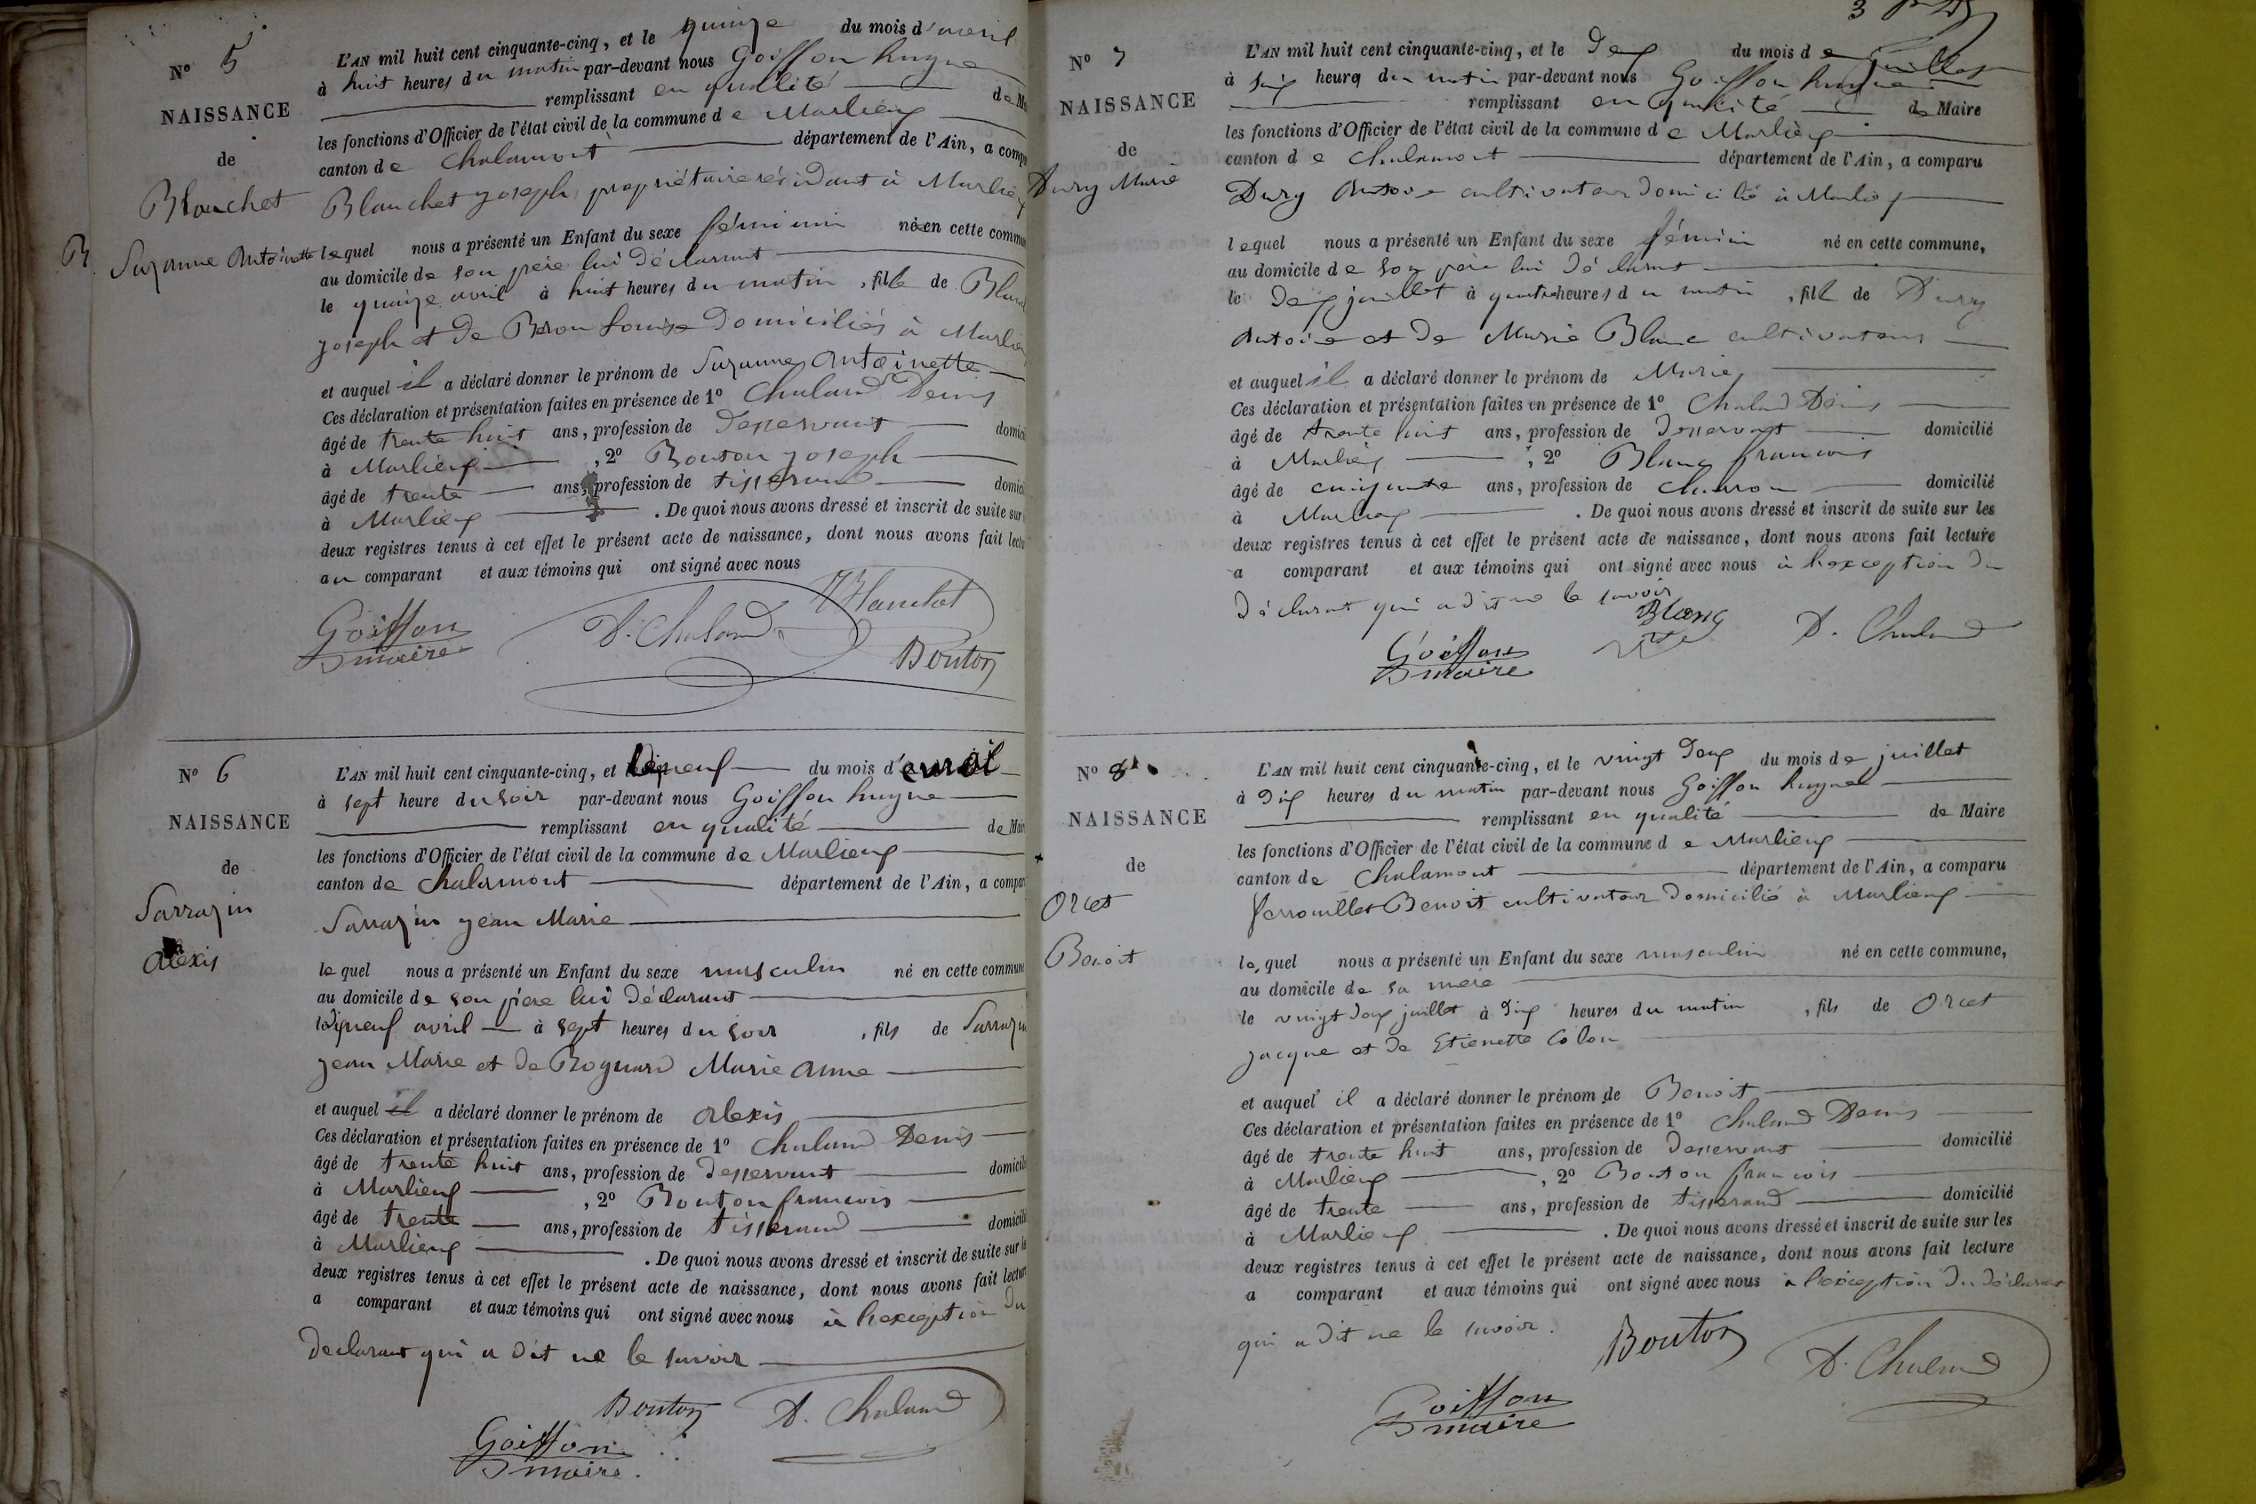 N° 5
NAISSANCE
de
Blanchet
Suzanne Antoinette
L'AN mil huit cent cinquante-cinq, et le quinze du mois d'avril
à huit heures du matin par-devant nous Goiffon hugue
remplissant en qualité de M
les fonctions d'Officier de l'état civil de la commune de Marlieux
canton de Chalamont département de l'Ain, a compa
Blanchet joseph propriétaire résidant à Marlieux
lequel nous a présenté un Enfant du sexe féminin né en cette commu
au domicile de son père lui déclarant
le quinze avril à huit heures du matin, fille de Blan
joseph et de Beron Louise domiciliés à Marlieux
et auquel il a déclaré donner le prénom de Suzanne Antoinette
Ces déclaration et présentation faites en présence de 1° Chaland Denis
âgé de trente huit ans, profession de desservant domici
à Marlieux, 2° Bouton joseph
âgé de trente ans, profession de tisserand domici
à Marlieux. De quoi nous avons dressé et inscrit de suite sur
deux registres tenus à cet effet le présent acte de naissance, dont nous avons fait lectu
au comparant et aux témoins qui ont signé avec nous
Blanchet
Goiffon D. Chaland
maire Bouton
N° 6
NAISSANCE
de
Sarrazin
Alexis
L'AN mil huit cent cinquante-cinq, et le dixneuf du mois d'avril
à sept heure du soir par-devant nous Goiffon hugue
remplissant en qualité de Mair
les fonctions d'Officier de l'état civil de la commune de Marlieux
canton de Chalamont département de l'Ain, a compar
Sarrazin jean Marie
lequel nous a présenté un Enfant du sexe masculin né en cette commune
au domicile de son père lui déclarant
le dixneuf avril à sept heures du soir, fils de Sarrazin
jean Marie et de Bognard Marie Anne
et auquel il a déclaré donner le prénom de Alexis
Ces déclaration et présentation faites en présence de 1° Chaland Denis
âgé de trente huit ans, profession de desservant domicili
à Marlieux, 2° Bouton francois
âgé de trente ans, profession de tisserand domicili
à Marlieux. De quoi nous avons dressé et inscrit de suite sur le
deux registres tenus à cet effet le présent acte de naissance, dont nous avons fait lectur
a comparant et aux témoins qui ont signé avec nous à l'exception du
declarant qui a dit ne le savoir
Bouton D. Chaland
Goiffon
maire
3
N° 7
NAISSANCE
de
Dury Marie
L'AN mil huit cent cinquante-cinq, et le deux du mois de juillet
à six heures du matin par-devant nous Goiffon hugue
remplissant en qualité de Maire
les fonctions d'Officier de l'état civil de la commune de Marlieux
canton de Chalamont département de l'Ain, a comparu
Dury Antoine cultivateur domicilié à Marlieux
lequel nous a présenté un Enfant du sexe féminin né en cette commune,
au domicile de son père lui déclarant
le deux juillet à quatre heures du matin, fille de Dury
Antoine et de Marie Blanc cultivateurs
et auquel il a déclaré donner le prénom de Marie
Ces déclaration et présentation faites en présence de 1° Chaland Denis
âgé de trente huit ans, profession de desservant domicilié
à Marlieux, 2° Blanc francois
âgé de cinquante ans, profession de charron domicilié
à Marlieux. De quoi nous avons dressé et inscrit de suite sur les
deux registres tenus à cet effet le présent acte de naissance, dont nous avons fait lecture
a comparant et aux témoins qui ont signé avec nous à l'exception du
déclarant qui a dit ne le savoir
Blanc D. Chaland
Goiffon
maire
N° 8
NAISSANCE
de
Orcet
Benoit
L'AN mil huit cent cinquante-cinq, et le vingt deux du mois de juillet
à dix heures du matin par-devant nous Goiffon hugue
remplissant en qualité de Maire
les fonctions d'Officier de l'état civil de la commune de Marlieux
canton de Chalamont département de l'Ain, a comparu
ferrouillet Benoit cultivateur domicilié à Marlieux
lequel nous a présenté un Enfant du sexe masculin né en cette commune,
au domicile de sa mère
le vingt deux juillet à dix heures du matin, fils de Orcet
jacque et de Etienette Colon
et auquel il a déclaré donner le prénom de Benoit
Ces déclaration et présentation faites en présence de 1° Chaland Denis
âgé de trente huit ans, profession de desservant domicilié
à Marlieux, 2° Bouton francois
âgé de trente ans, profession de tisserand domicilié
à Marlieux. De quoi nous avons dressé et inscrit de suite sur les
deux registres tenus à cet effet le présent acte de naissance, dont nous avons fait lecture
a comparant et aux témoins qui ont signé avec nous à l'exception du déclarant
qui a dit ne le savoir.
Bouton D. Chaland
Goiffon
maire